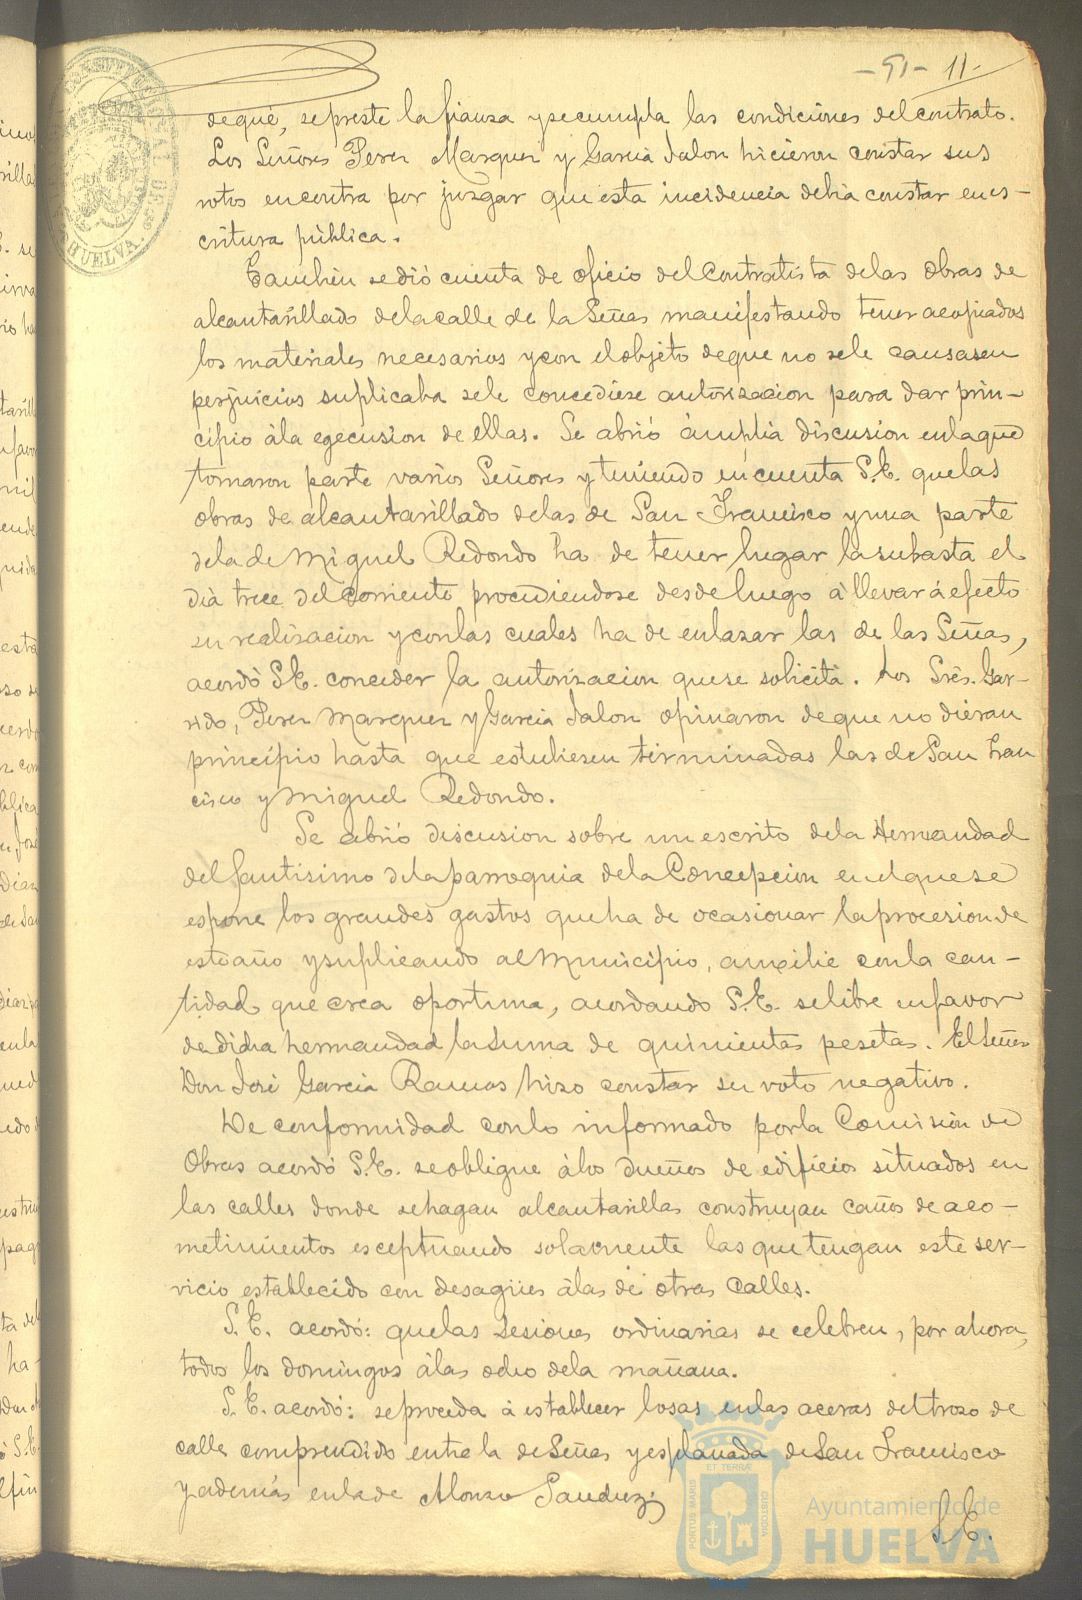 -91- 11.
CONSTITUCIONAL DE
HUELVA.
de que, se preste la fianza y se cumpla las condiciones del contrato.
Los Señores Perez Marquez y Garcia Jalon hicieron constar sus
votos en contra por juzgar que esta incidencia debia constar en es-
critura pública.
Tambien se dió cuenta de oficio del Contratista de las Obras de
alcantarillado de la calle de la Señas manifestando tener acopiados
los materiales necesarios y con el objeto de que no se le causasen
perjuicios suplicaba se le concediese autorizacion para dar prin-
cipio á la egecusion de ellas. Se abrió ámplia discusion en la que
tomaron parte varios Señores y teniendo en cuenta S.E. que las
obras de alcantarillado de las de San Francisco y una parte
de la de Miguel Redondo ha de tener lugar la subasta el
dia trece del Corriente procediendose desde luego á llevar á efecto
su realizacion y con las cuales ha de enlazar las de las Señas,
acordó S.E. conceder la autorizacion que se solicita. Los Sres. Gar-
rido, Perez Marquez y Garcia Jalon opinaron de que no dieran
principio hasta que estubiesen terminadas las de San Fran
cisco y Miguel Redondo.
Se abrió discusion sobre un escrito de la Hermandad
del Santisimo de la parroquia de la Concepcion en el que se
espone los grandes gastos que ha de ocasionar la procesion de
este año y suplicando al Municipio, auxilie con la can-
tidad que crea oportuna, acordando S.E. se libre en favor
de dicha hermandad la suma de quinientas pesetas. El Señor
Don José Garcia Ramos hizo constar su voto negativo.
De conformidad con lo informado por la Comision de
Obras acordó S.E. se obligue á los dueños de edificios situados en
las calles donde se hagan alcantarillas construyan caños de aco-
metimientos esceptuando solamente las que tengan este ser-
vicio establecido con desagües á las de otras calles.
S.E. acordó: que las sesiones ordinarias se celebren, por ahora,
todos los domingos á las ocho de la mañana.
S.E. acordó: se proceda á establecer losas en las aceras del trozo de
calle comprendido entre la de Señas y esplanada de San Francisco
y además en la de Alonso Sanchez;
S.E.
PORTUS MARIS ET TERRÆ CUSTODIA
Ayuntamiento de
HUELVA